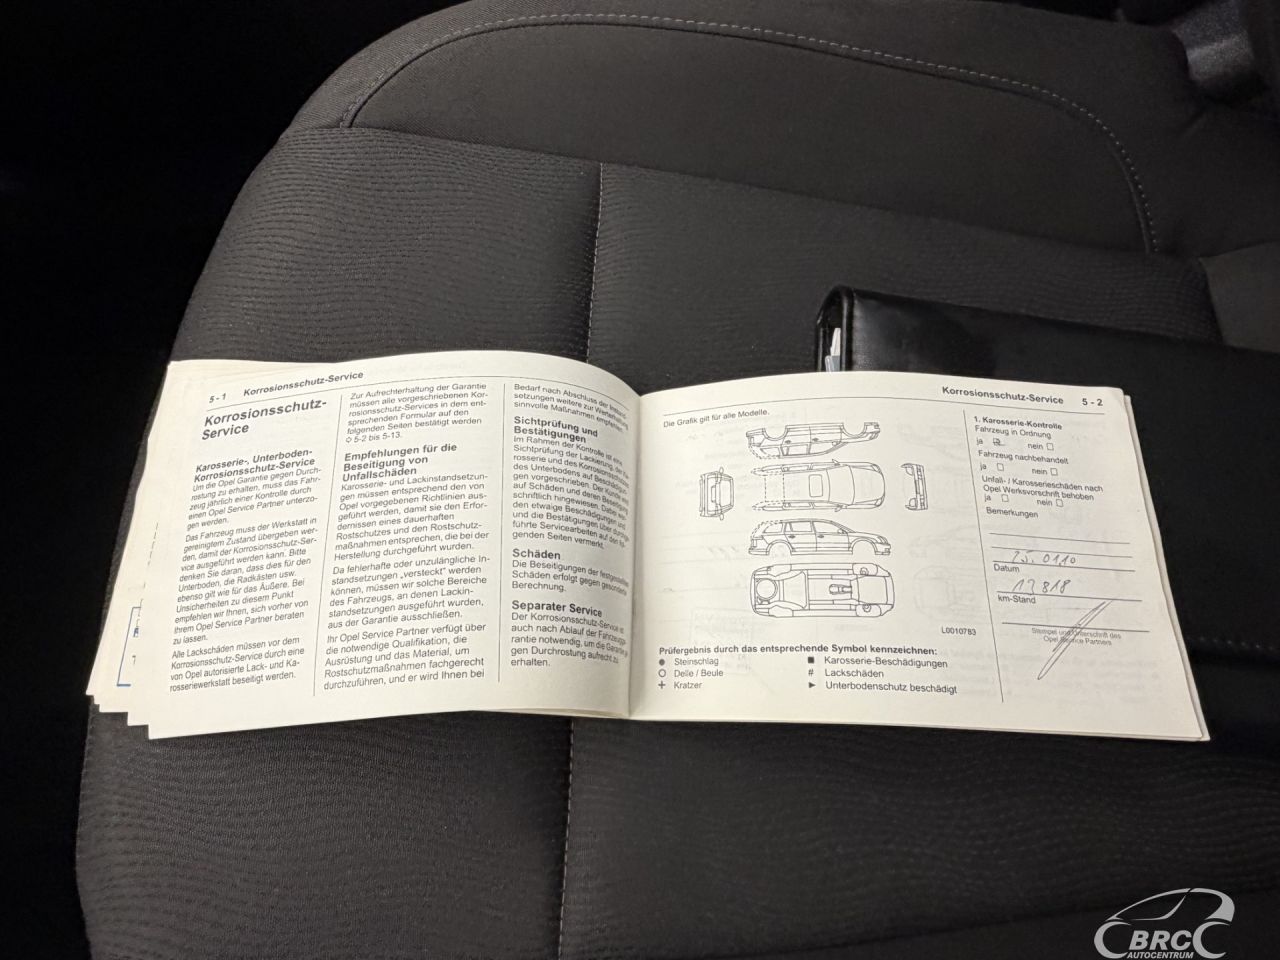 5 - 1 Korrosionsschutz-Service
Korrosionsschutz-
Service
Karosserie-, Unterboden-
Korrosionsschutz-Service
Um die Opel Garantie gegen Durch-
rostung zu erhalten, muss das Fahr-
zeug jährlich einer Kontrolle durch
einen Opel Service Partner unterzo-
gen werden.
Das Fahrzeug muss der Werkstatt in
gereinigtem Zustand übergeben wer-
den, damit der Korrosionsschutz-Ser-
vice ausgeführt werden kann. Bitte
denken Sie daran, dass dies für den
Unterboden, die Radkästen usw.
ebenso gilt wie für das Äußere. Bei
Unsicherheiten zu diesem Punkt
empfehlen wir Ihnen, sich vorher von
Ihrem Opel Service Partner beraten
zu lassen.
Alle Lackschäden müssen vor dem
Korrosionsschutz-Service durch eine
von Opel autorisierte Lack- und Ka-
rosseriewerkstatt beseitigt werden.
Zur Aufrechterhaltung der Garantie
müssen alle vorgeschriebenen Kor-
rosionsschutz-Services in dem ent-
sprechenden Formular auf den
folgenden Seiten bestätigt werden
◊ 5-2 bis 5-13.
Empfehlungen für die
Beseitigung von
Unfallschäden
Karosserie- und Lackinstandsetzun-
gen müssen entsprechend den von
Opel vorgegebenen Richtlinien aus-
geführt werden, damit sie den Erfor-
dernissen eines dauerhaften
Rostschutzes und den Rostschutz-
maßnahmen entsprechen, die bei der
Herstellung durchgeführt wurden.
Da fehlerhafte oder unzulängliche In-
standsetzungen „versteckt" werden
können, müssen wir solche Bereiche
des Fahrzeugs, an denen Lackin-
standsetzungen ausgeführt wurden,
aus der Garantie ausschließen.
Ihr Opel Service Partner verfügt über
die notwendige Qualifikation, die
Ausrüstung und das Material, um
Rostschutzmaßnahmen fachgerecht
durchzuführen, und er wird Ihnen bei
Bedarf nach Abschluss der Instand-
setzungen weitere zur Werterhaltung
sinnvolle Maßnahmen empfehlen.
Sichtprüfung und
Bestätigungen
Im Rahmen der Kontrolle ist eine
Sichtprüfung der Lackierung, der Ka-
rosserie und des Korrosionsschutzes
des Unterbodens auf Beschädigun-
gen vorgeschrieben. Der Kunde wird
auf Schäden und deren Beseitigung
schriftlich hingewiesen. Dabei wer-
den etwaige Beschädigungen und
und die Bestätigungen über durchge-
führte Servicearbeiten auf den fol-
genden Seiten vermerkt.
Schäden
Die Beseitigungen der festgestellten
Schäden erfolgt gegen gesonderte
Berechnung.
Separater Service
Der Korrosionsschutz-Service ist
auch nach Ablauf der Fahrzeugga-
rantie notwendig, um die Garantie ge-
gen Durchrostung aufrecht zu
erhalten.
Korrosionsschutz-Service 5 - 2
Die Grafik gilt für alle Modelle.
L0010783
Prüfergebnis durch das entsprechende Symbol kennzeichnen:
● Steinschlag
○ Delle / Beule
+ Kratzer
■ Karosserie-Beschädigungen
# Lackschäden
► Unterbodenschutz beschädigt
1. Karosserie-Kontrolle
Fahrzeug in Ordnung
ja nein
Fahrzeug nachbehandelt
ja nein
Unfall- / Karosserieschäden nach
Opel Werksvorschrift behoben
ja nein
Bemerkungen
25.01.10
Datum
17818
km-Stand
Stempel und Unterschrift des
Opel Service Partners
BRC
AUTOCENTRUM